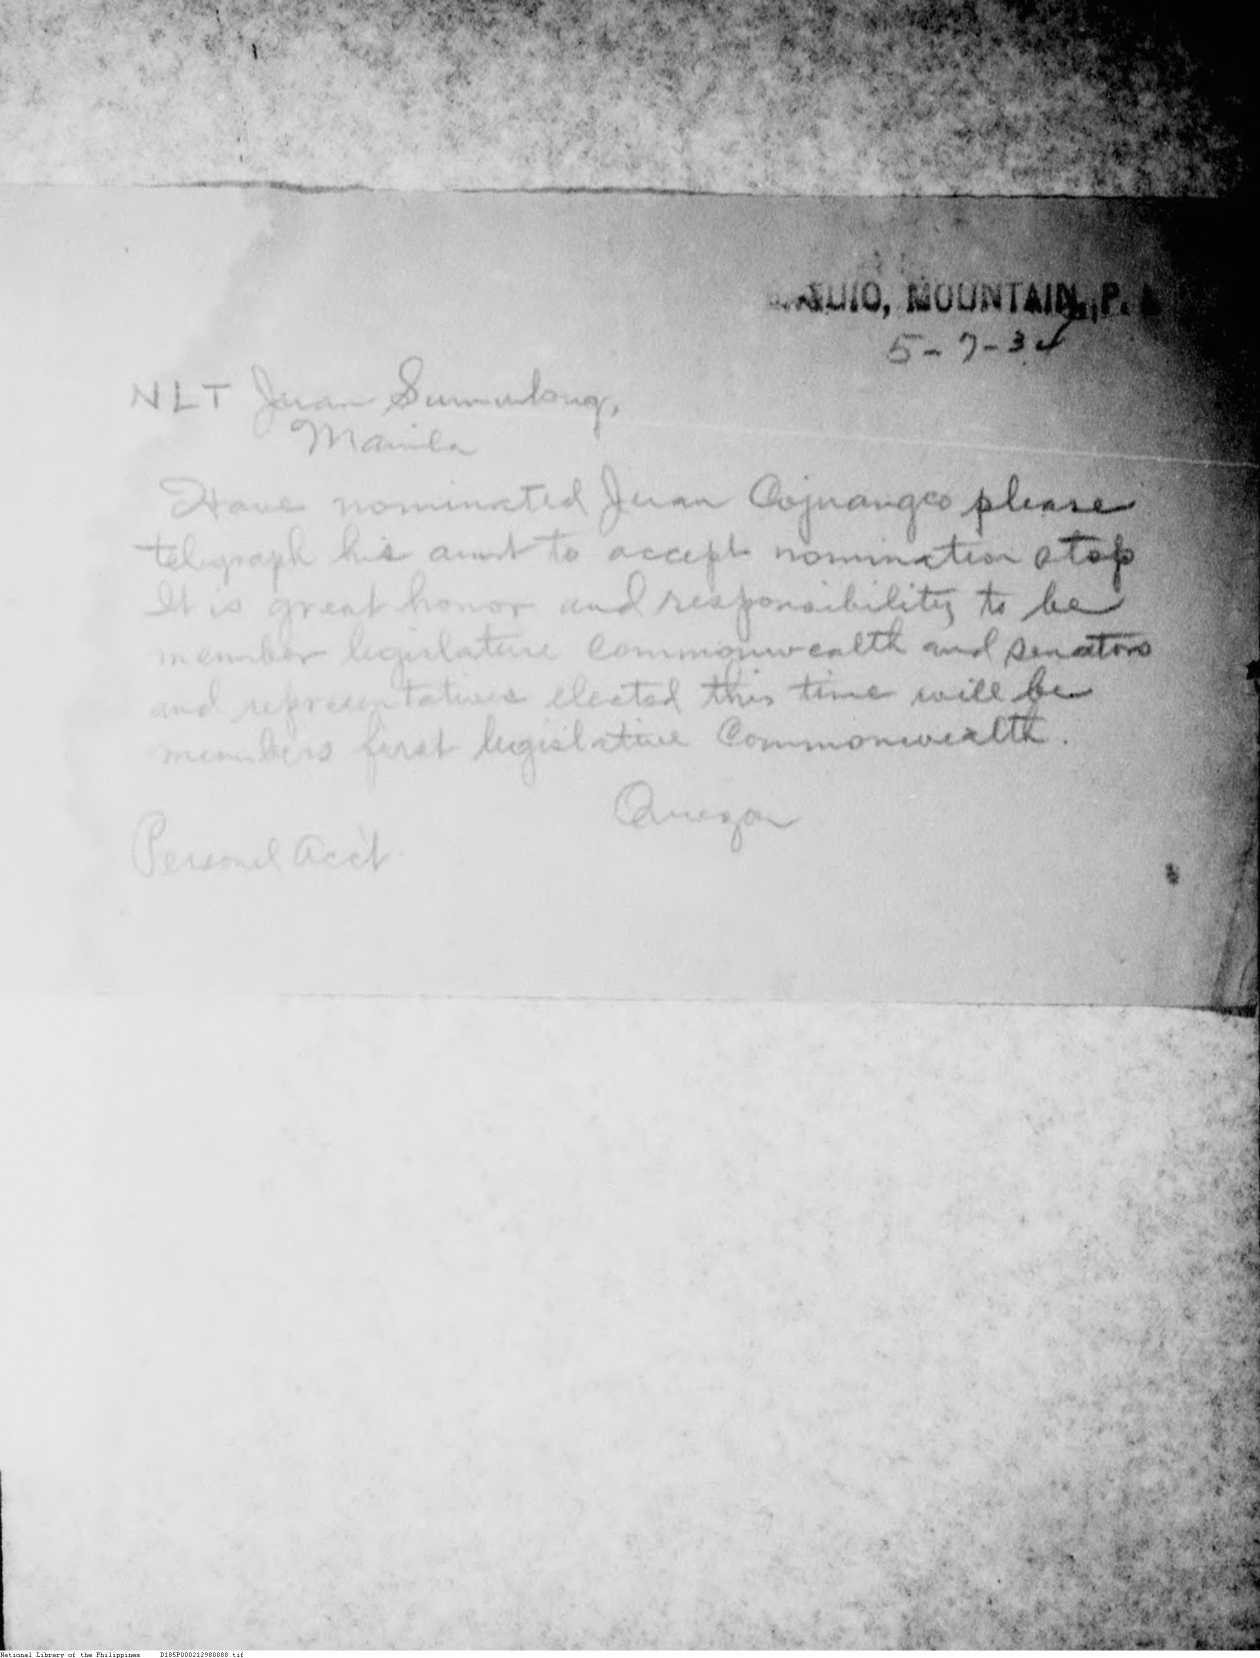 BAGUIO, MOUNTAIN, P. I.
5-7-34
NLT Juan Sumulong,
Manila
Have nominated Juan Cojuangco please
telegraph his aunt to accept nomination stop
It is great honor and responsibility to be
member legislature Commonwealth and senators
and representatives elected this time will be
members first legislative Commonwealth.
Quezon
Personal Acc't
National Library of the Philippines D185P000212980088.tif